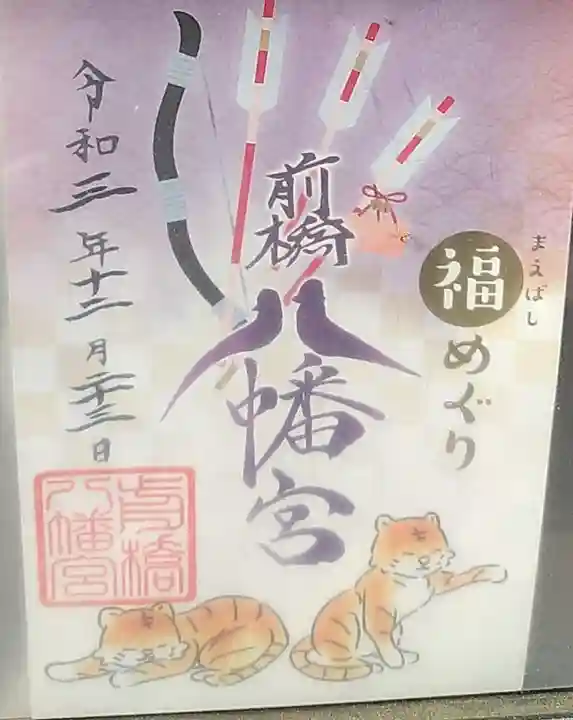 まえばし
福めぐり
前橋
八幡宮
令和三年十二月二十三日
前橋
八幡宮